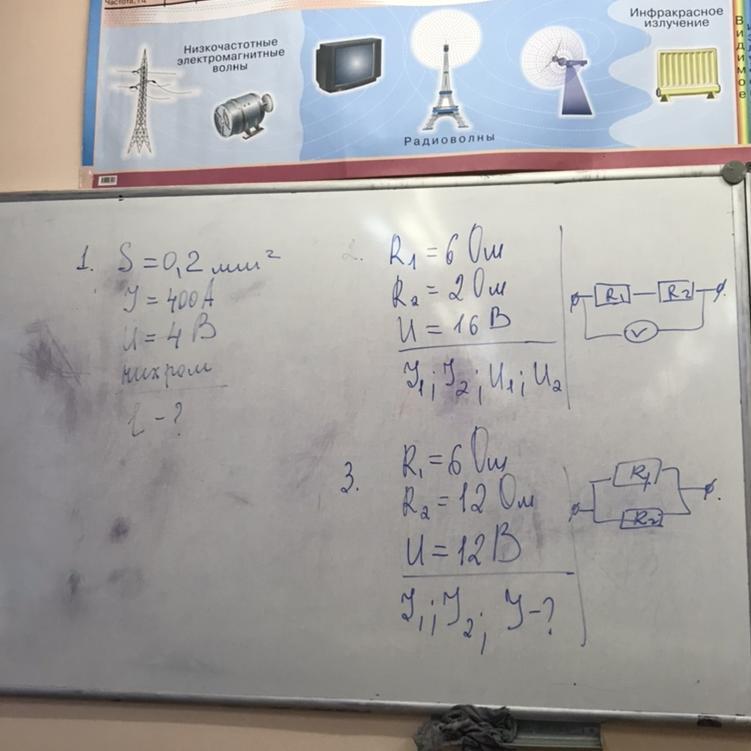 Частота, Гц
Низкочастотные
электромагнитные
волны
Радиоволны
Инфракрасное
излучение
Видимое
1. S = 0,2 мм²
I = 400 А
U = 4 В
нихром
l - ?
2. R₁ = 6 Ом
R₂ = 2 Ом
U = 16 В
I₁; I₂; U₁; U₂
R₁
R₂
V
3. R₁ = 6 Ом
R₂ = 12 Ом
U = 12 В
I₁; I₂; I - ?
R₁
R₂